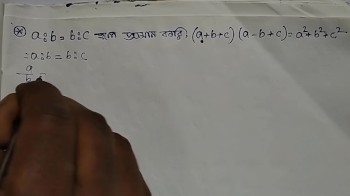 ⊛ a:b = b:c হলে প্রমাণ কর যে, (a+b+c) (a-b+c) = a²+b²+c²
∴ a:b = b:c
a
b